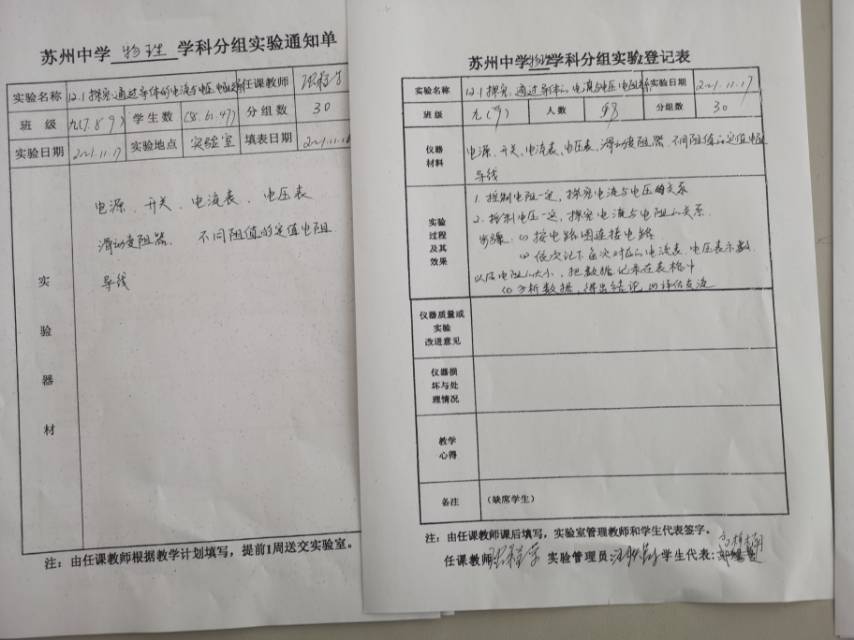 苏州中学 物理 学科分组实验通知单
实验名称 12.1探究:通过导体的电流与电压、电阻 任课教师
班 级 九(7.8.9) 学生数 (58.61.47) 分组数 30
实验日期 2021.11.17 实验地点 实验室 填表日期
实验器材
电源、开关、电流表、电压表
滑动变阻器、不同阻值的定值电阻
导线
注:由任课教师根据教学计划填写,提前1周送交实验室。
苏州中学物理学科分组实验登记表
实验名称 12.1探究:通过导体的电流与电压电阻 实验日期 2021.11.17
班 级 九(9) 人 数 分组数 30
仪器材料
电源、开关、电流表、电压表、滑动变阻器、不同阻值的定值电阻
导线
实验过程及其效果
1.控制电阻一定,探究电流与电压的关系
2.控制电压一定,探究电流与电阻的关系.
步骤:(1)按电路图连接电路
(2)依次记下每次对应的电流表、电压表示数
以及电阻的大小,把数据记录在表格中
(3)分析数据,得出结论 (4)评估交流
仪器质量或实验改进意见
仪器损坏与处理情况
教学心得
备注 (缺席学生)
注:由任课教师课后填写,实验室管理教师和学生代表签字。
任课教师 实验管理员 学生代表: